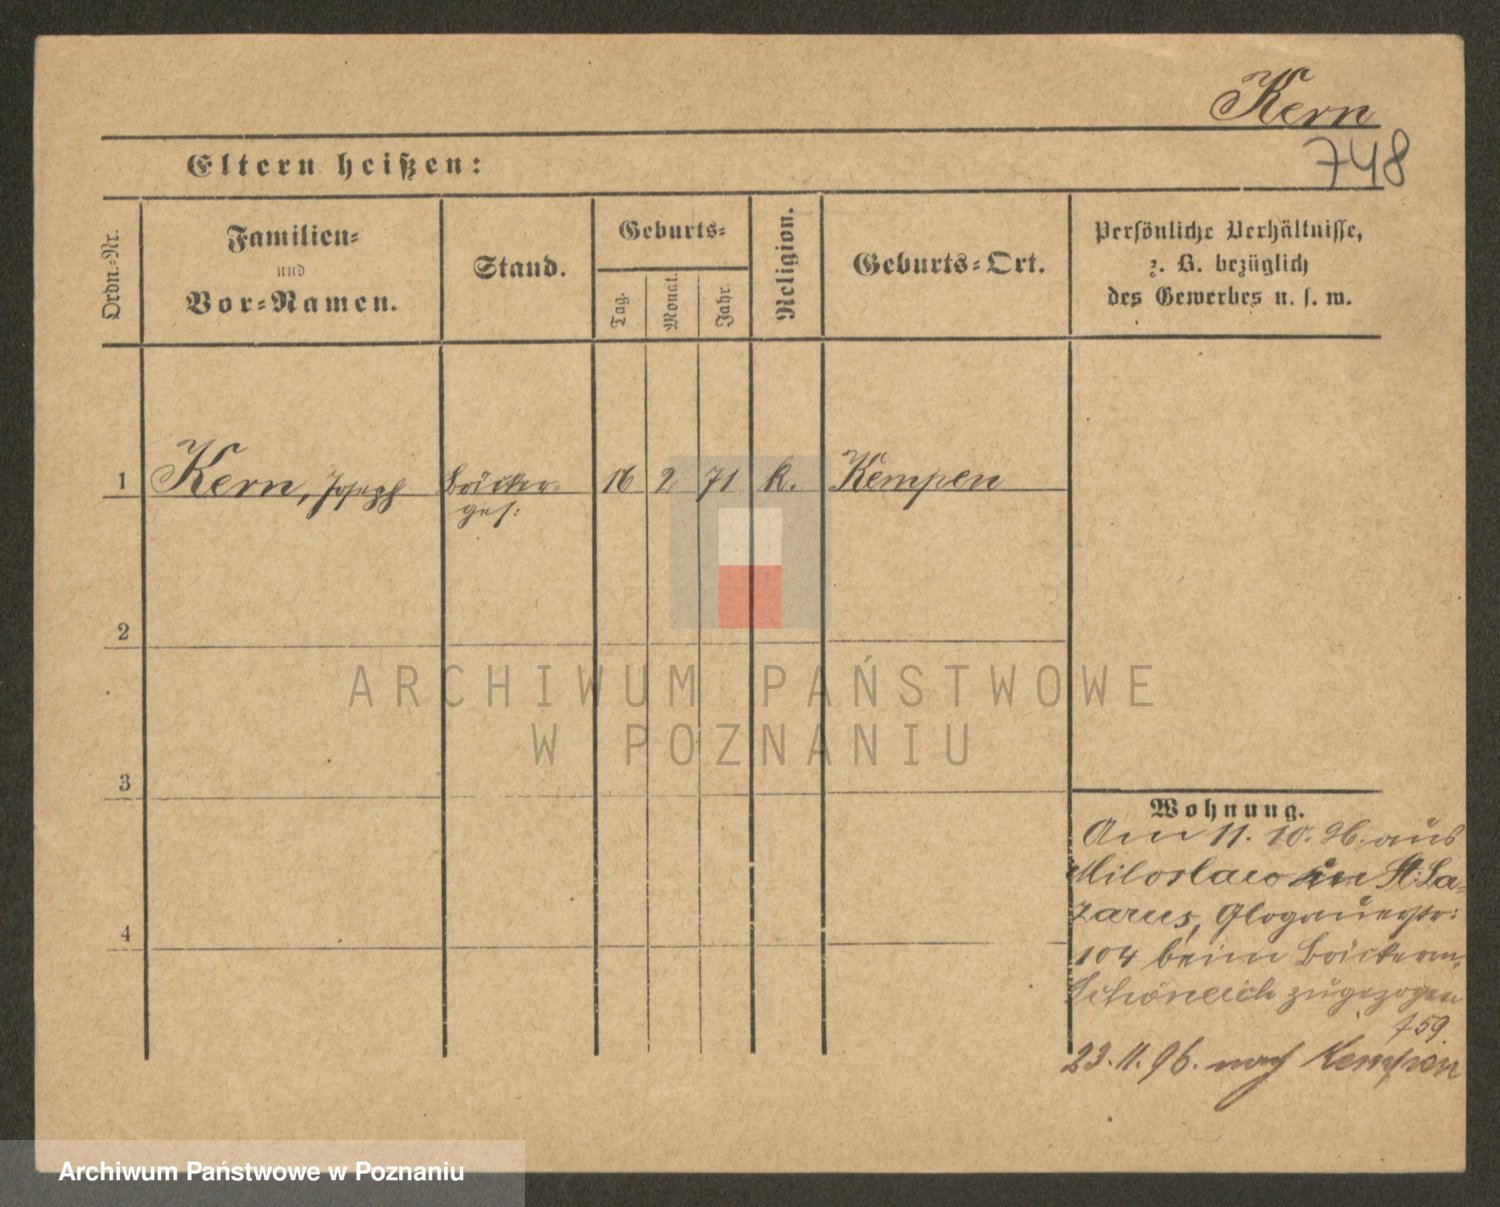 Kern
748
Eltern heißen:
Ordn.-Nr.
Familien-
und
Vor-Namen.
Stand.
Geburts-
Tag.
Monat.
Jahr.
Religion.
Geburts-Ort.
Persönliche Verhältnisse,
z. B. bezüglich
des Gewerbes u. s. w.
1 Kern, Joseph Bäcker- 16 2 71 k. Kempen
ges:
2
3
4
Wohnung.
Am 11. 10. 96. aus
Miloslaw in St. La-
zarus, Glogauerstr:
104 beim Bäckerm.
Schöneich zugezogen
759
23.11.96. nach Kempen
ARCHIWUM PAŃSTWOWE
W POZNANIU
Archiwum Państwowe w Poznaniu